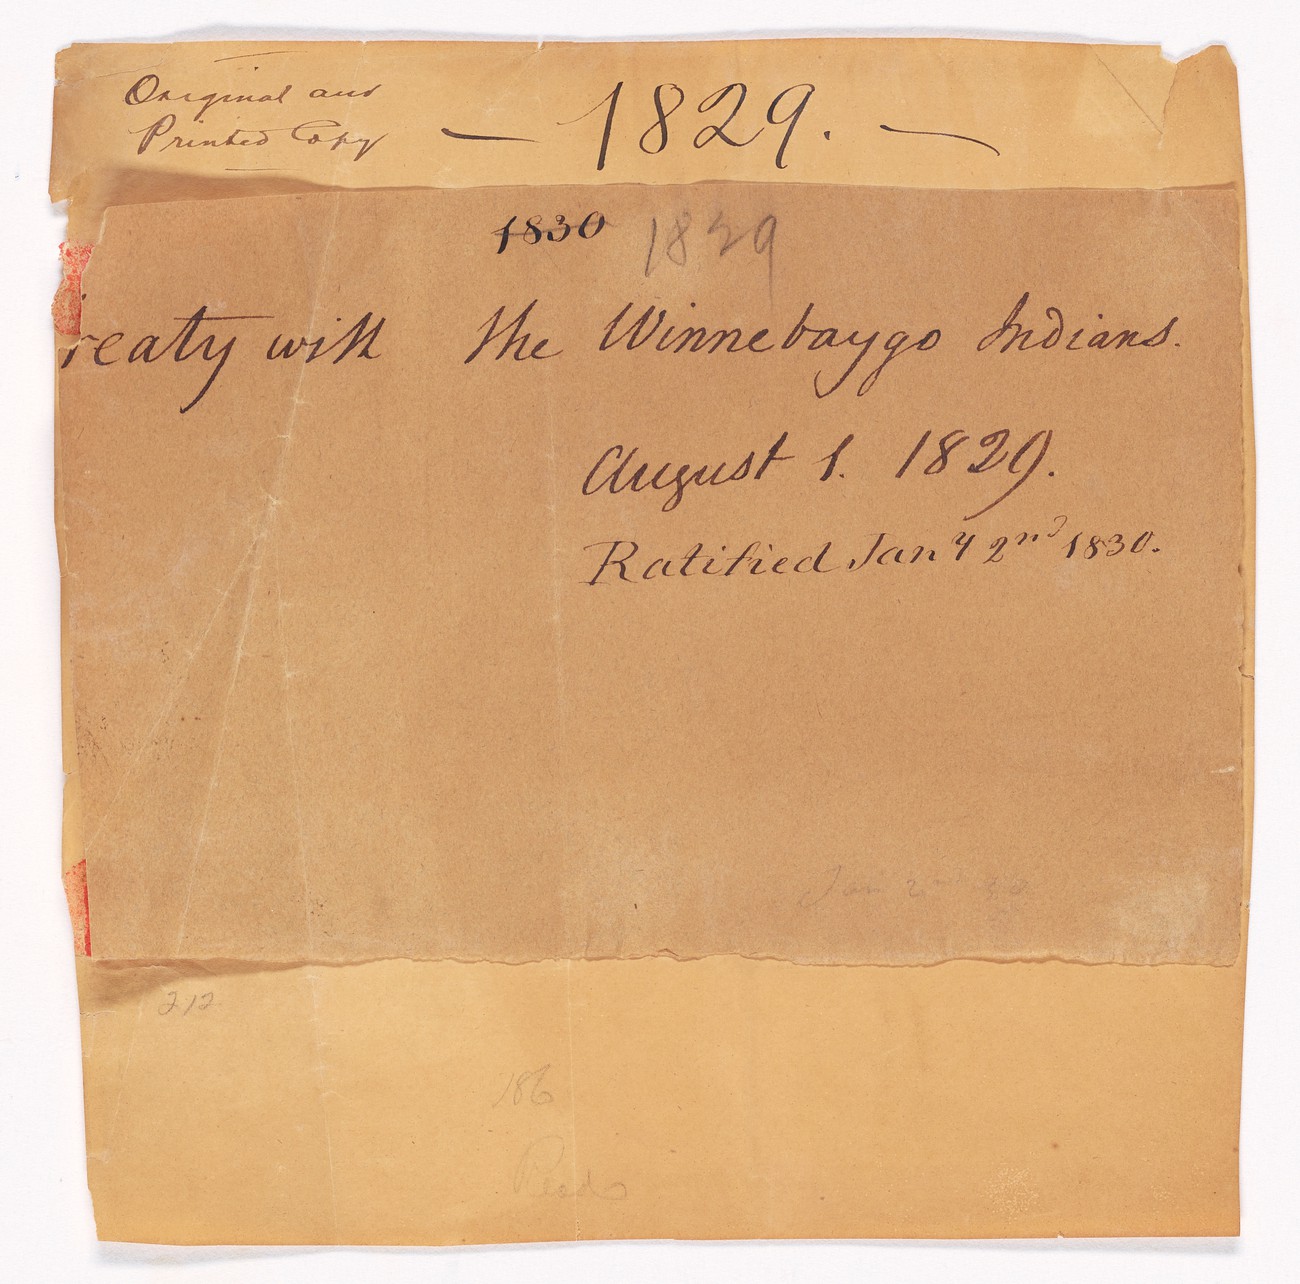 Original and
Printed Copy
— 1829. —
1830 1829
reaty with the Winnebaygo Indians.
August 1. 1829.
Ratified Jany 2nd 1830.
Jan 2nd 30
212
186
Read